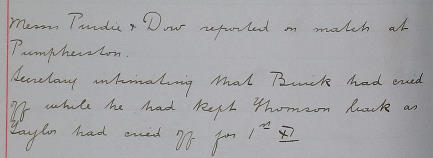 Messrs Purdie & Dow reported on match at
Pumpherston.
Secretary intimating that Buick had cried
off while he had kept Thomson back as
Taylor had cried off for 1st XI